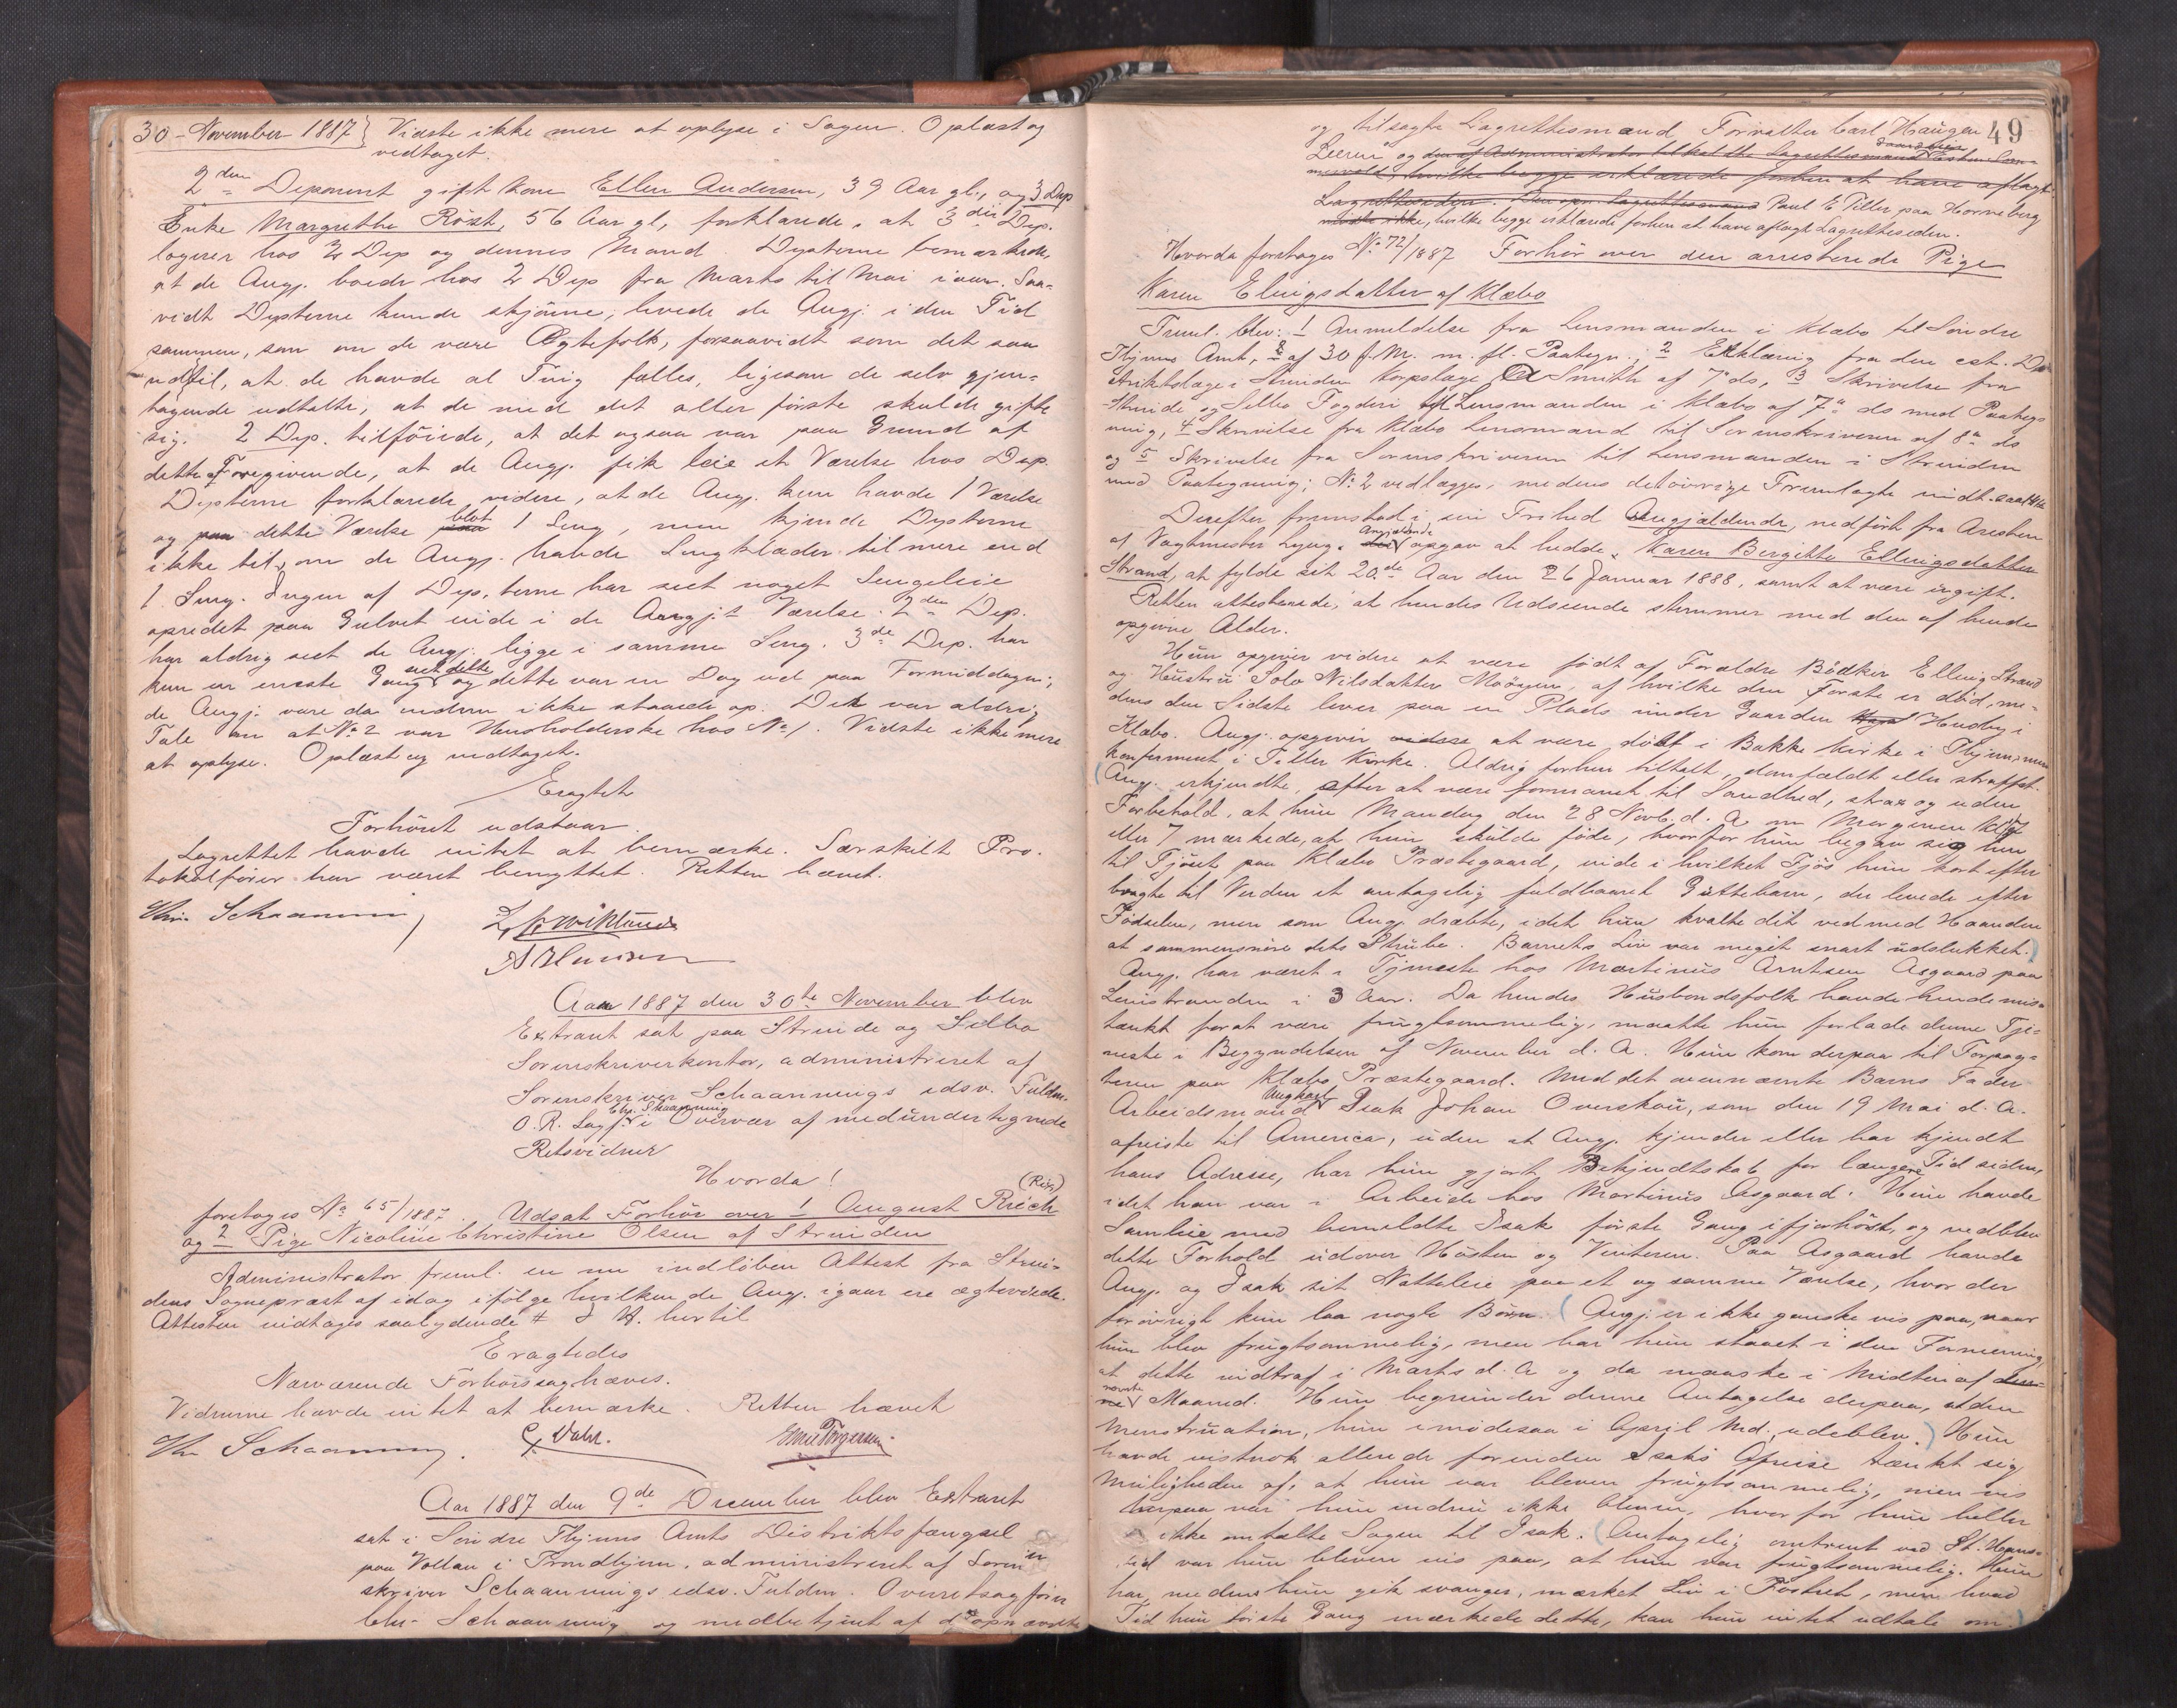 30 - November 1887 } Vidste ikke mere at oplyse i Sagen. Oplæst og
vedtaget.
2den Deponent gift Kone Ellen Andersen, 39 Aar gl., og 3 Dep
Enke Margrethe Röst, 56 Aar gl, forklarede, at 3die Dep.
logerer hos 2 Dep og dennes Mand Depterne bemærkede,
at de Angj. boede hos 2 Dep fra Marts til Mai iaar. Saa-
vidt Depterne kunde skjönne, levede de Angj. i den Tid
sammen, som om de være Ægtefolk, forsaavidt som det saa
ud til, at de havde al Ting fælles, ligesom de selv gjen-
tagende udtalte, at de med det aller förste skulde gifte
sig. 2 Dep. tilföiede, at det ogsaa var paa Grund af
dette Foregivende, at de Angj. fik leie et Værelse hos Dep.
Depterne forklarede videre, at de Angj. kun havde 1 Værelse
og paa dette Værelse blot 1 Seng, men kjende Depterne
ikke til, om de Angj. havde Sengklæder til mere end
1 Seng. Ingen af Dep,terne har seet noget Sengeleie
opredet paa Gulvet inde i de Angj.s Værelse. 2den Dep.
har aldrig seet de Angj. ligge i samme Seng. 3de Dep. har
kun en eneste Gang seet dette og dette var en Dag ud paa Formiddagen;
de Angj. vare da endnu ikke staaede op. Det var aldrig
Tale om at No 2 var Husholderske hos No 1. Vidste ikke mere
at oplyse. Oplæst og vedtaget.
Eragtet
Forhöret udstaar.
Lagrettet havde intet at bemærke. Særskilt Pro-
tokolförer har været benyttet. Retten hævet.
Chr. Schaanning
A Hansen
Aar 1887 den 30te November blev
Extraret sat paa Strinde og Selbo
Sorenskriverkontor, administreret af
Sorenskriver Schaannings edsv. Fuldm.
O. R. Sagf. Chr. Schaanning i Overvær af medundertegnede
Retsvidner
Hvorda!
foretoges No 65/1887. Udsat Forhör over 1 August Riech (Rise)
og 2 Pige Nicoline Christine Olsen af Strinden
Administrator freml. en nu indlöben Attest fra Strin-
dens Sognepræst af idag ifölge hvilken de Angj. igaar ere ægteviede.
Attesten indtages saalydende # J H. hertil
Eragtedes
Nærværende Forhörssag hæves.
Vidnerne havde intet at bemærke. Retten hævet
Chr Schaanning. C. Dahl. Torgersen
Aar 1887 den 9de December blev Extraret
sat i Söndre Thjems Amts Distriktsfængsel
paa Vollan i Trondhjem, administreret af Soren-
skriver Schaannings edsv. Fuldm. Overretssagförer
Chr. Schaanning og medbetjent af de opnævnte
49
og tilsagte Lagrettesmænd Forvalter Carl Haugan
Leeren og den af Administrator tilkaldte Lagrettesmand
hvilke begge erklærede forhen at have aflagt
Lagretteseden. Den opn. Lagrettesmand Paul E Tiller paa Horneberg
mödte ikke, hvilke begge erklærede forhen at have aflagt Lagretteseden.
Hvorda foretoges No 72/1887 Forhör over den arresterede Pige
Karen Elingsdatter af Klæbo
Freml. blev: 1 Anmeldelse fra Lensmanden i Klæbo til Söndre
Thjems Amt, af 30 f. M. m. fl. Paategn., 2 Erklæring fra den cst. Di-
striktslæge i Strinden Korpslæge Smith af 7de ds, 3 Skrivelse fra
Strinde og Selbo Fogderi til Lensmanden i Klæbo af 7de ds med Paateg-
ning, 4 Skrivelse fra Klæbo Lensmand til Sorenskriveren af 8de ds
og 5 Skrivelse fra Sorenskriveren til Lensmanden i Strinden
med Paategning; No 2 vedlægges, medens det övrige Fremlagte indt. saal.
Derefter fremstod i sin Frihed Angjældende, nedfört fra Aresten
af Vagtmester Lyng. Angjældende opgav at hedde Karen Bergitte Ellingsdatter
Strand, at fylde sit 20de Aar den 26 Januar 1888, samt at være ugift.
Retten attesterede, at hendes Udseende stemmer med den af hende
opgivne Alder.
Hun opgiver videre at være födt af Forældre Bödker Elling Strand
og Hustru Solv Nilsdatter Moöyen, af hvilke den Förste er död, me-
dens den Sidste lever paa en Plads under Gaarden Huseby i
Klæbo. Angj. opgiver videre at være döbt i Bakke Kirke i Thjem, men
konfirmeret i Tiller Kirke. Aldrig forhen tiltalt, domfældt eller straffet.
(Angj. erkjendte, efter at være formanet til Sandhed, strax og uden
Forbehold, at hun Mandag den 28 Novb. d. A. om Morgenen Kl. 6
eller 7 mærkede, at hun skulde föde, hvorfor hun begav sig hen
til Fjöset paa Klæbo Præstegaard, inde i hvilket Fjös hun kort efter
bragte til Verden et antagelig fuldbaaret Guttebarn, der levede efter
Födselen, men som Angj. dræbte, idet hun kvalte det ved med Haanden
at sammensnöre dets Strube. Barnets Liv var meget snart udslukket.)
Angj. har været i Tjeneste hos Martinus Arntsen Asgaard paa
Leirstranden i 3 Aar. Da hendes Husbondsfolk havde hende mis-
tænkt for at være frugtsommelig, maatte hun forlade denne Tje-
neste i Begyndelsen af November d. A. Hun kom derpaa til Forpag-
teren paa Klæbo Præstegaard. Med det ovennævnte Barns Fader
Arbeidsmand Ungkarl Isak Johan Overskou, som den 19 Mai d. A.
afreiste til America, uden at Angj. kjender eller har kjendt
hans Adresse, har hun gjort Bekjendtskab for længere Tid siden,
idet han var i Arbeide hos Martinus Asgaard. Hun havde
Samleie med bemeldte Isak förste Gang ifjorhöst, og vedblev
dette Forhold udover Hösten og Vinteren. Paa Asgaard havde
Angj. og Isak sit Natteleie paa et og samme Værelse, hvor der
forövrigt kun laa nogle Börn. (Angj. er ikke ganske vis paa, naar
hun blev frugtsommelig, men har hun staaet i den Formening,
at dette indtraf i Marts d. A og da maaske i Midten af den-
ne nævnte Maaned. Hun begrunder denne Antagelse derpaa, at den
Menstruation, hun imödesaa i April Md., udeblev.) Hun
havde vistnok allerede forinden Isaks Afreise tænkt sig
Muligheden af, at hun var bleven frugtsommelig, men vis
herpaa var hun endnu ikke bleven, hvorfor hun heller
ikke omtalte Sagen til Isak. (Antagelig omtrent ved St. Hans-
tid var hun bleven vis paa, at hun var frugtsommelig. Hun
har, medens hun gik svanger, mærket Liv i Fostret, men hvad
Tid hun förste Gang mærkede dette, kan hun intet udtale om.)